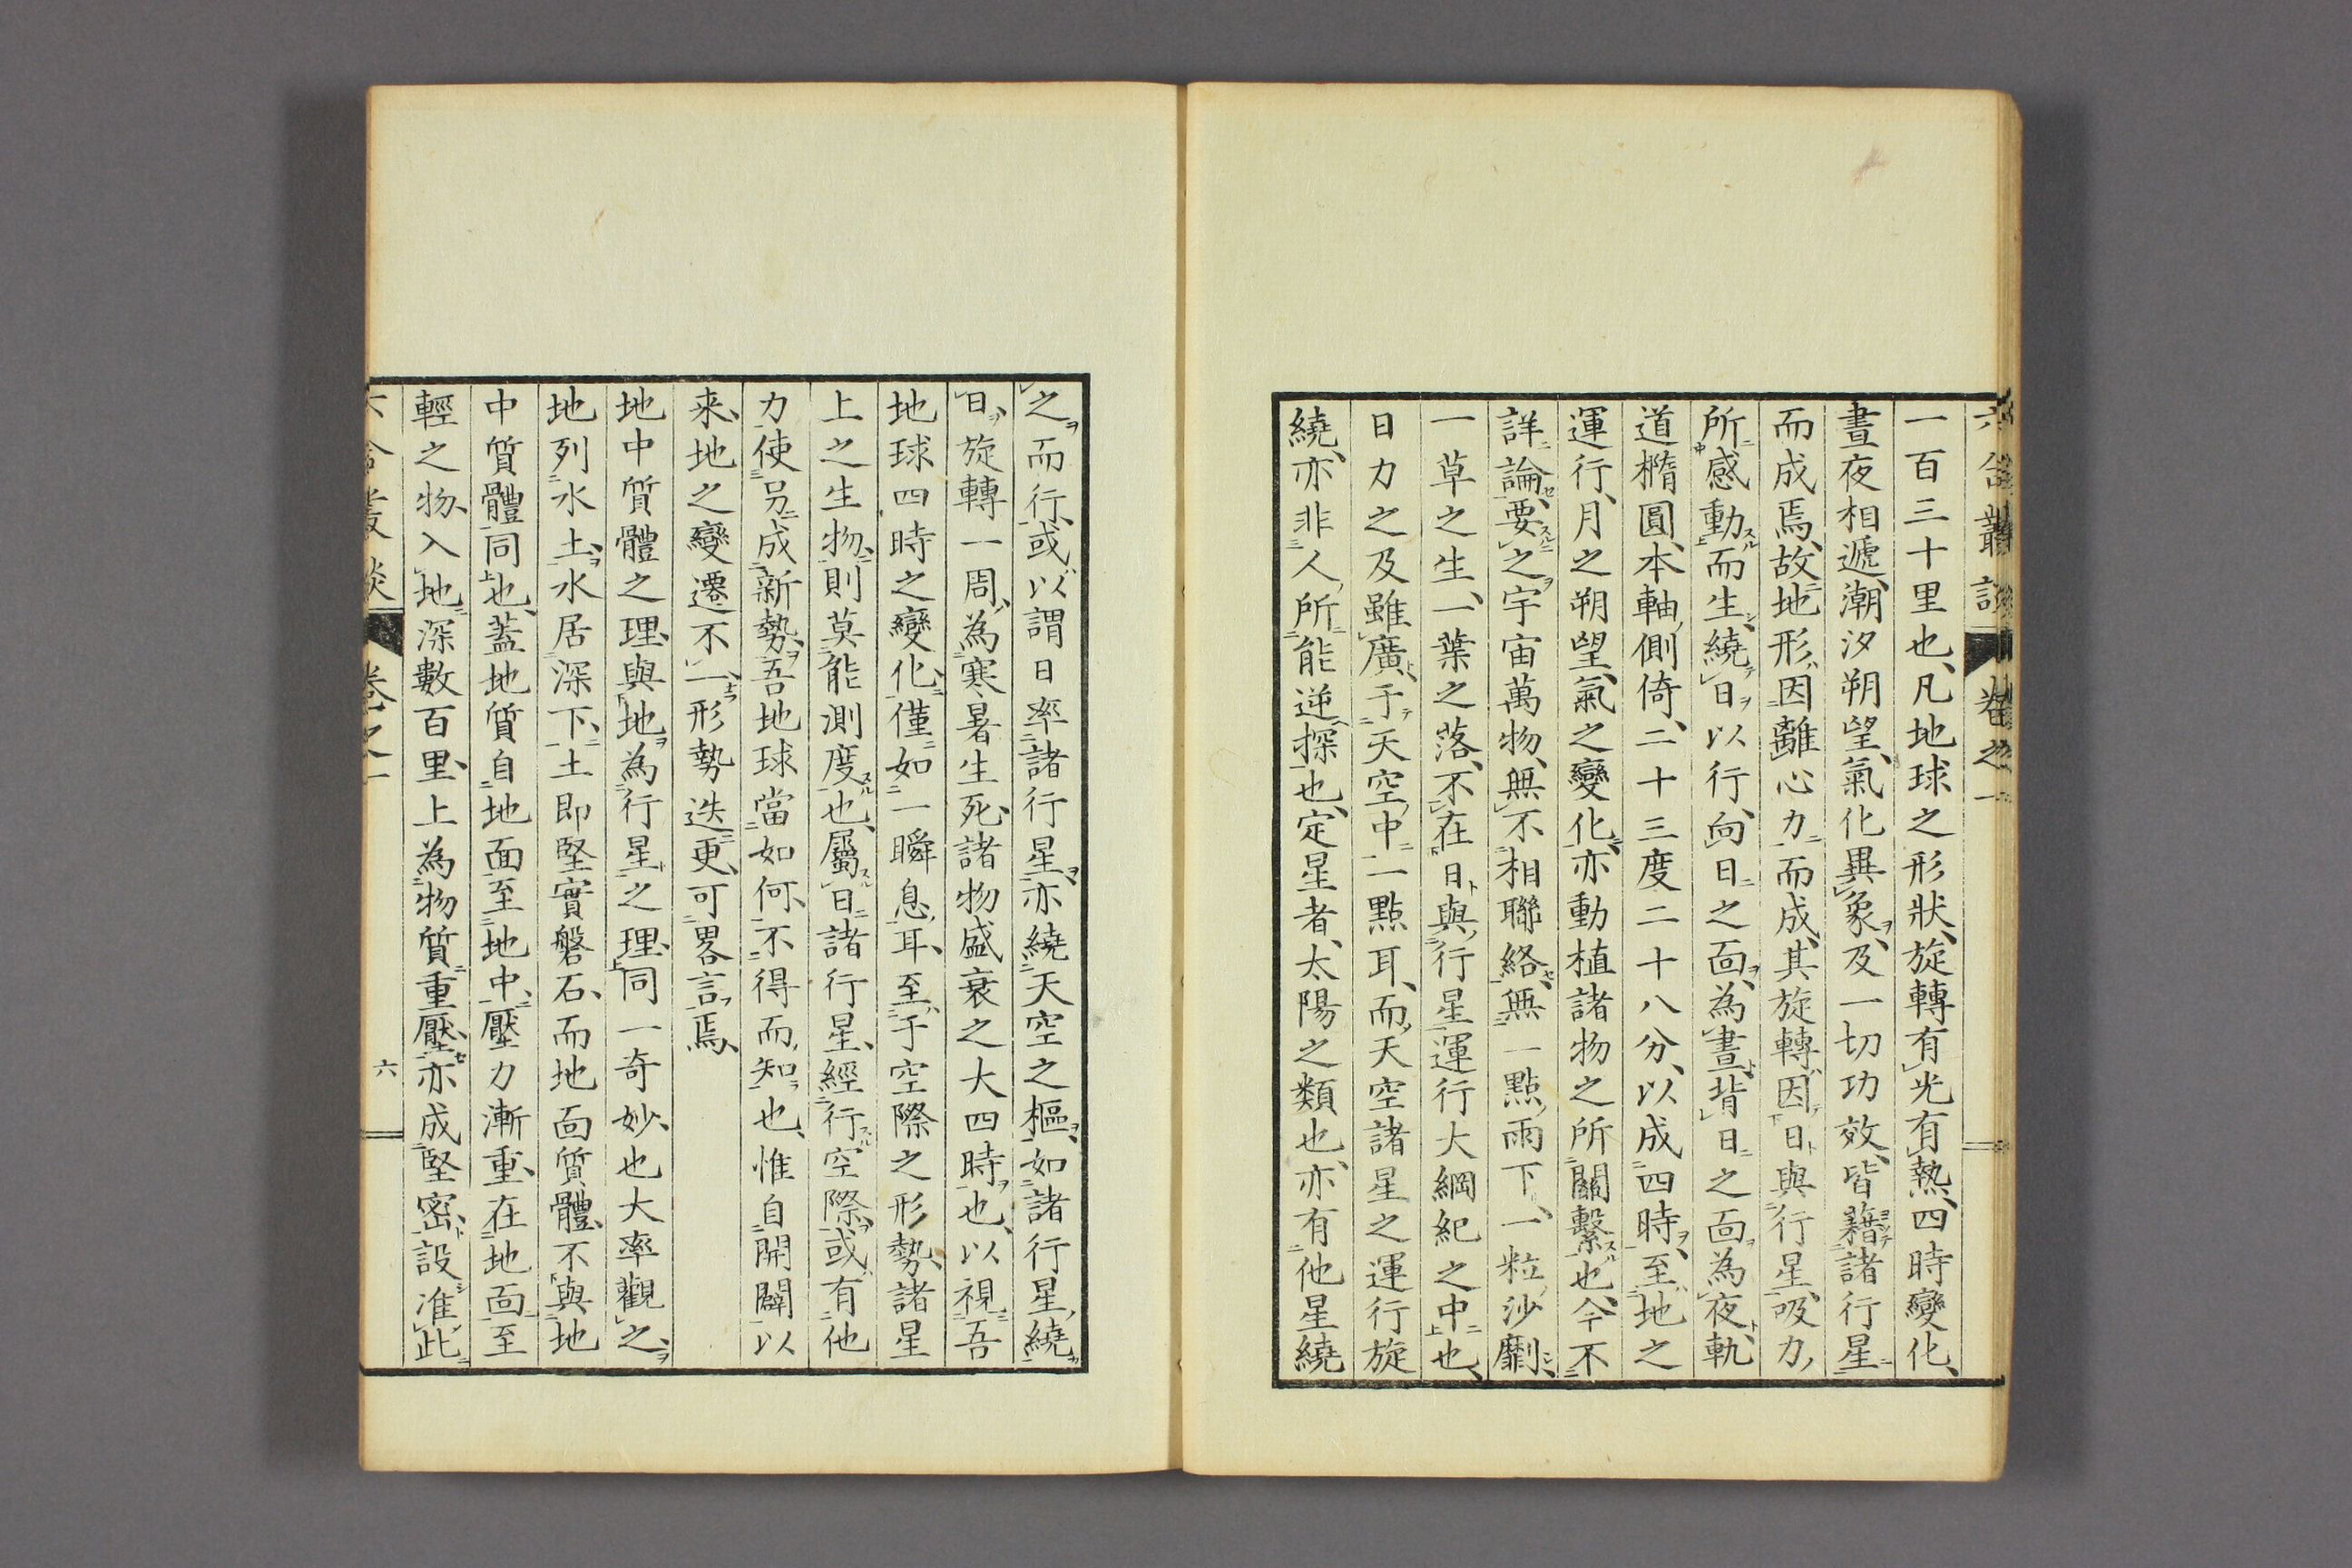 六合叢談 卷之一
一百三十里也、凡地球之形狀、旋轉有光有熱、四時變化、
晝夜相遞、潮汐朔望、氣化異象、及一切功效、皆藉諸行星
而成焉、故地形因離心力而成、其旋轉因日與行星、吸力、
所感動而生、繞日以行、向日之面、為晝、背日之面為夜、軌
道橢圓、本軸側倚、二十三度二十八分、以成四時、至地之
運行、月之朔望、氣之變化、亦動植諸物之所關繫也、今不
詳論、要之宇宙萬物、無不相聯絡、無一點雨下、一粒沙劘、
一草之生、一葉之落、不在日與行星運行大綱紀之中也、
日力之及雖廣、于天空中一點耳、而天空諸星之運行旋
繞、亦非人所能逆探也、定星者、太陽之類也、亦有他星繞
之而行、或以謂日率諸行星、亦繞天空之樞、如諸行星繞
日、旋轉一周、為寒暑生死、諸物盛衰之大四時也、以視吾
地球四時之變化、僅如一瞬息耳、至于空際之形勢、諸星
上之生物、則莫能測度也、屬日諸行星、經行空際、或有他
力使另成新勢、吾地球當如何、不得而知也、惟自開闢以
来、地之變遷不一、形勢迭更、可畧言焉、
地中質體之理、與地為行星之理、同一奇妙、也大率觀之、
地列水土、水居深下、土即堅實磐石、而地面質體、不與地
中質體同也、蓋地質自地面至地中、壓力漸重、在地面至
輕之物、入地深數百里、上為物質重壓、亦成堅密、設準此
六合叢談 卷之一 六